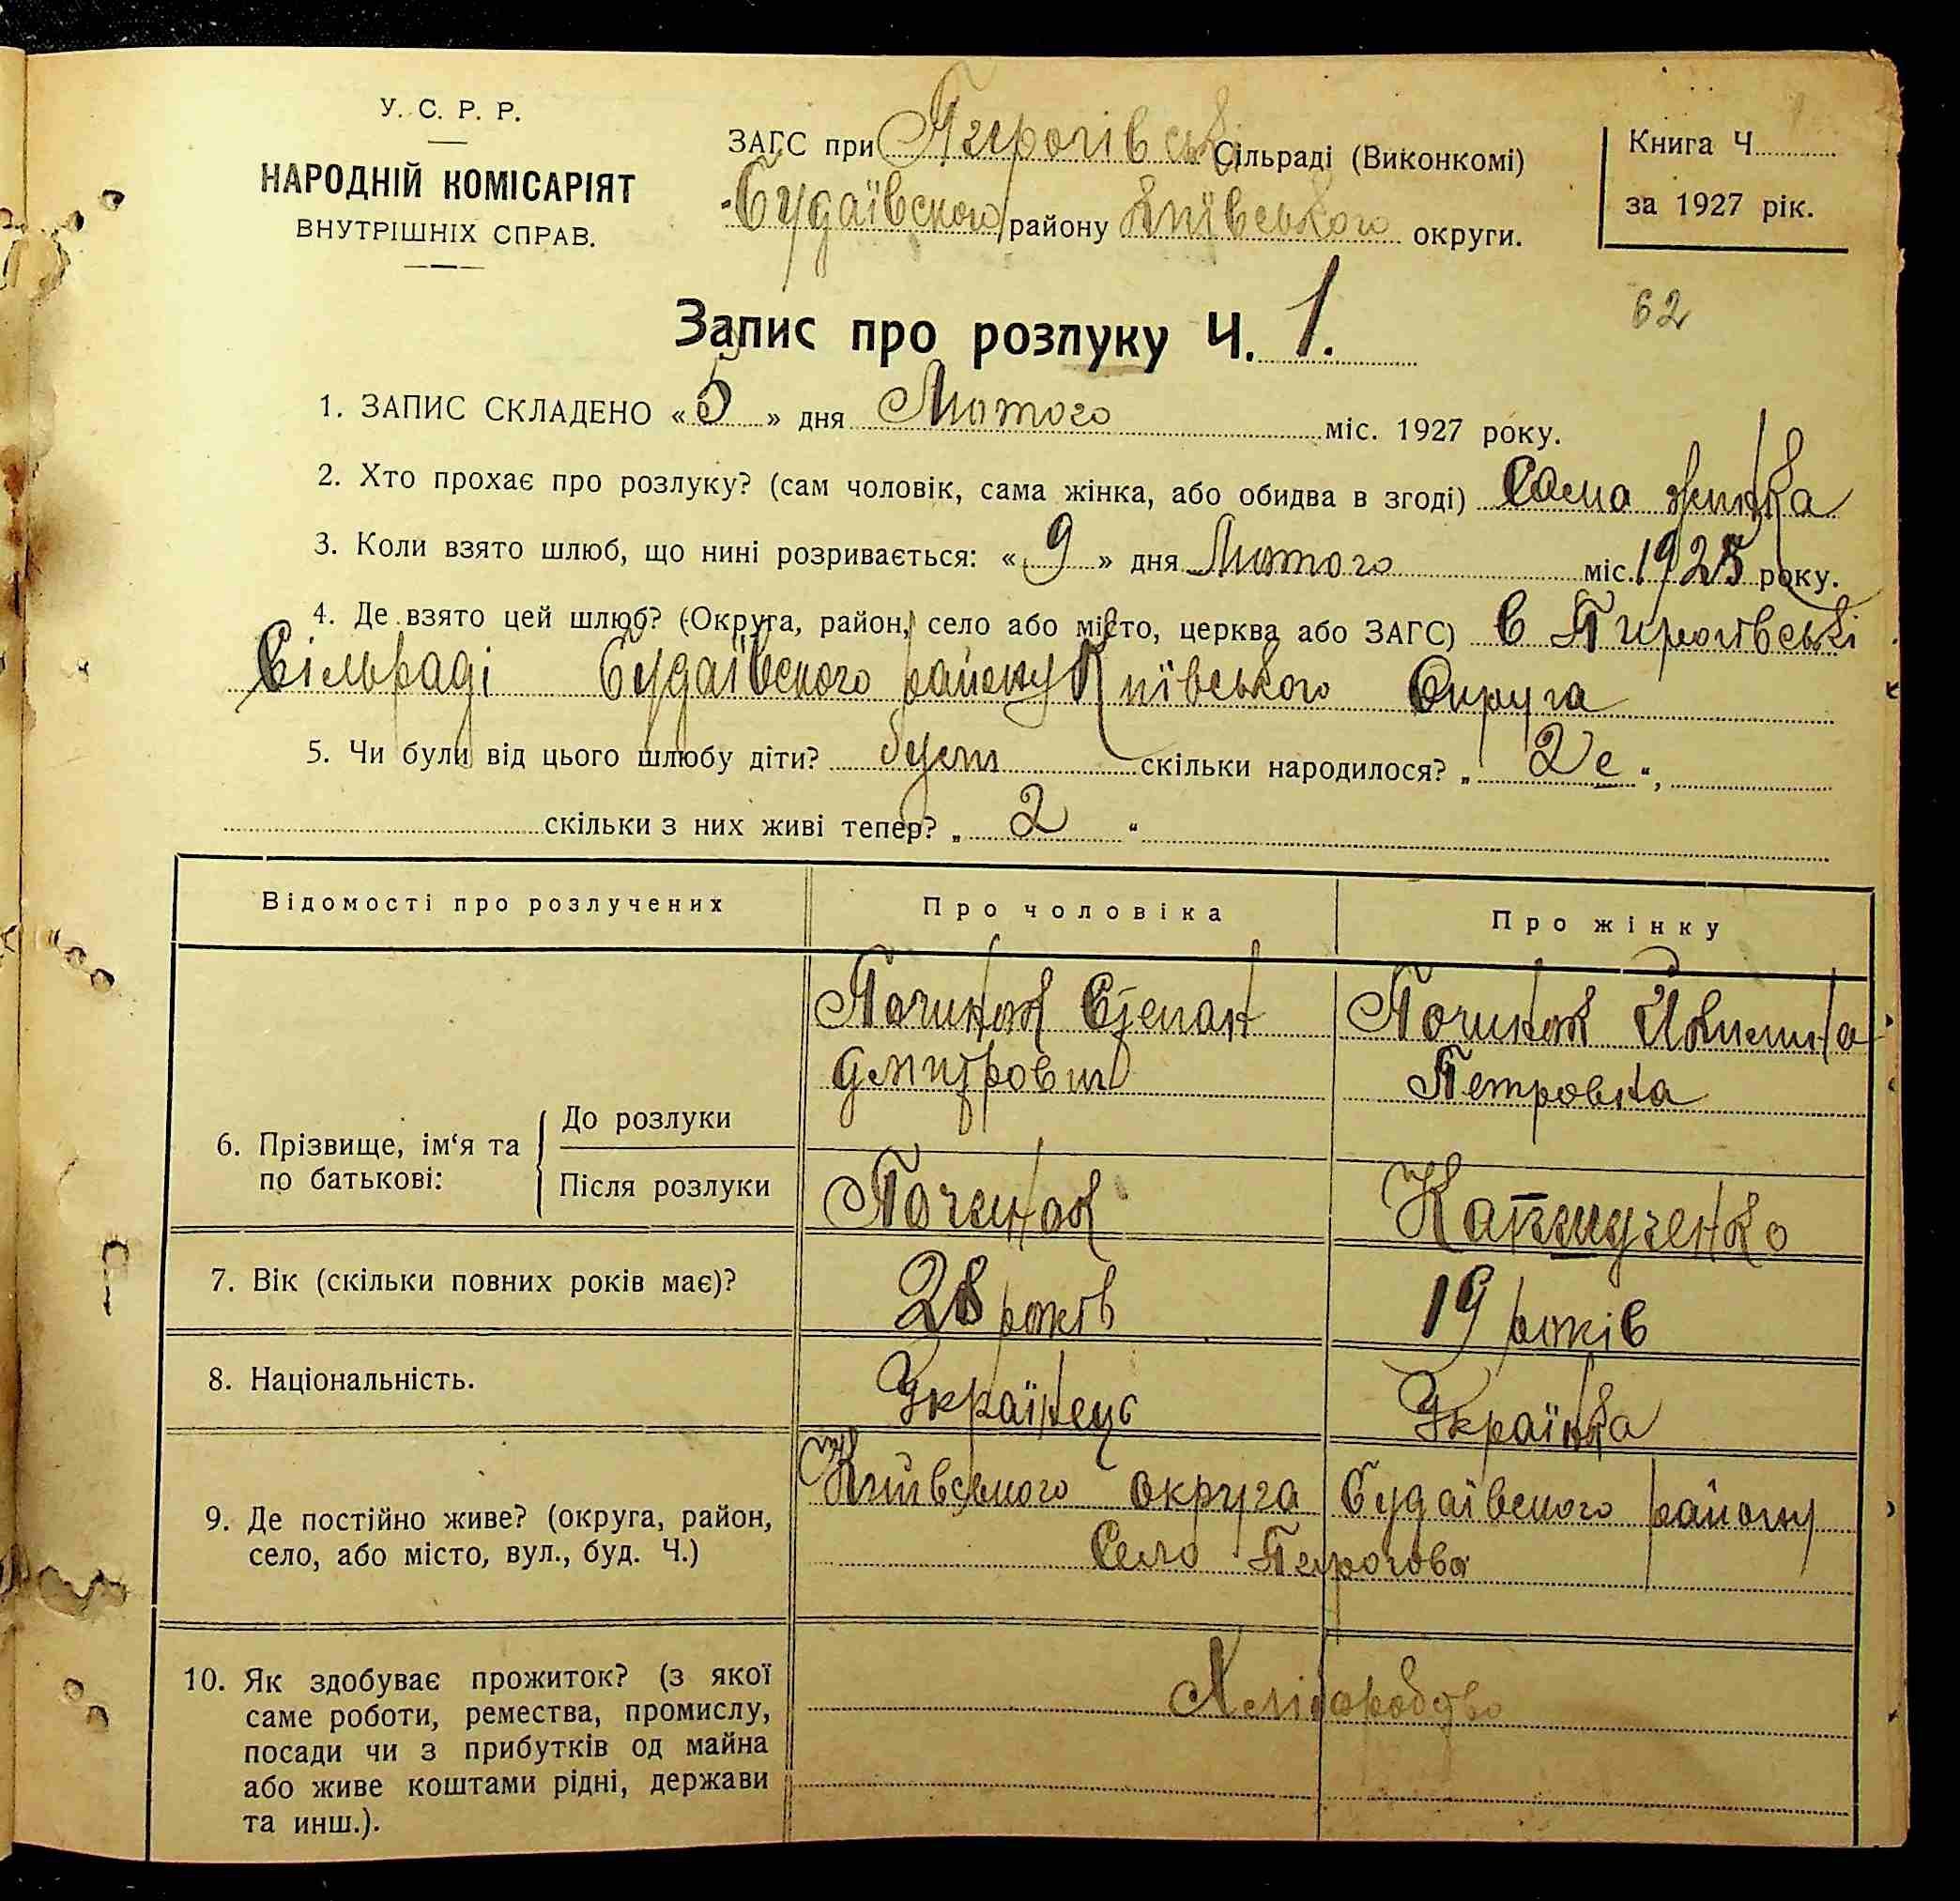 У. С. Р. Р.
НАРОДНІЙ КОМІСАРІЯТ
ВНУТРІШНІХ СПРАВ.
ЗАГС при Пирогівські Сільраді (Виконкомі)
Будаївского району Київського округи.
Книга Ч.
за 1927 рік.
62
Запис про розлуку Ч. 1.
1. ЗАПИС СКЛАДЕНО « 5 » дня Лютого міс. 1927 року.
2. Хто прохає про розлуку? (сам чоловік, сама жінка, або обидва в згоді) Сама жинка
3. Коли взято шлюб, що нині розривається: « 9 » дня Лютого міс. 1925 року.
4. Де взято цей шлюб? (Округа, район, село або місто, церква або ЗАГС) В Пирогівські
Сільраді Будаївского району Київського Округа
5. Чи були від цього шлюбу діти? скільки народилося? „ 2е “,
скільки з них живі тепер? „ 2 “
Відомості про розлучених
Про чоловіка
Про жінку
6. Прізвище, ім‘я та по батькові:
До розлуки
Починок Степан
Дмитрович
Починок
Петровна
Після розлуки
Починок
7. Вік (скільки повних років має)?
28 років
19 років
8. Національність.
Українець
Українка
9. Де постійно живе? (округа, район,
село, або місто, вул., буд. Ч.)
Київського округа Будаївского району
Село Перогова
10. Як здобуває прожиток? (з якої
саме роботи, ремества, промислу,
посади чи з прибутків од майна
або живе коштами рідні, держави
та инш.).
Хліборобство